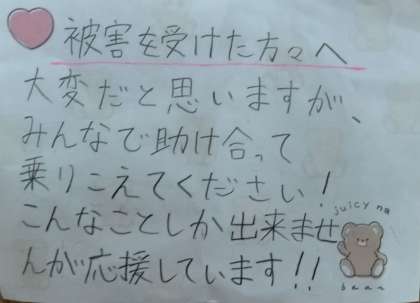 被害を受けた方々へ
大変だと思いますが、
みんなで助け合って
乗りこえてください!
こんなことしか出来ませ
んが応援しています!!
juicy na
bear